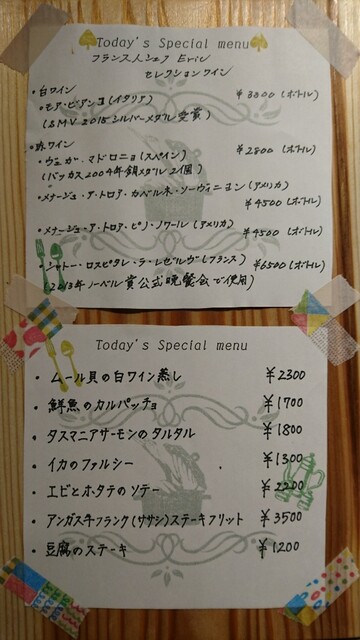 Today's Special menu
フランス人シェフ Eric
セレクションワイン
・白ワイン
・モア・ビアンコ(イタリア) ¥3800(ボトル)
(SMV 2015シルバーメダル受賞)
・赤ワイン
・ヴェガ・マドロニョ(スペイン) ¥2800(ボトル)
(バッカス2004年銀メダル2個)
・メナージュ・ア・トロア・カベルネ・ソーヴィニヨン(アメリカ)
¥4500(ボトル)
・メナージュ・ア・トロア・ピノ・ノワール(アメリカ) ¥4500(ボトル)
・シャトー・ロスピタレ・ラ・レゼルヴ(フランス) ¥6500(ボトル)
(2013年ノーベル賞公式晩餐会で使用)
Today's Special menu
・ムール貝の白ワイン蒸し ¥2300
・鮮魚のカルパッチョ ¥1700
・タスマニアサーモンのタルタル ¥1800
・イカのファルシー ¥1300
・エビとホタテのソテー ¥2200
・アンガス牛フランク(ササシ)ステーキフリット ¥3500
・豆腐のステーキ ¥1200